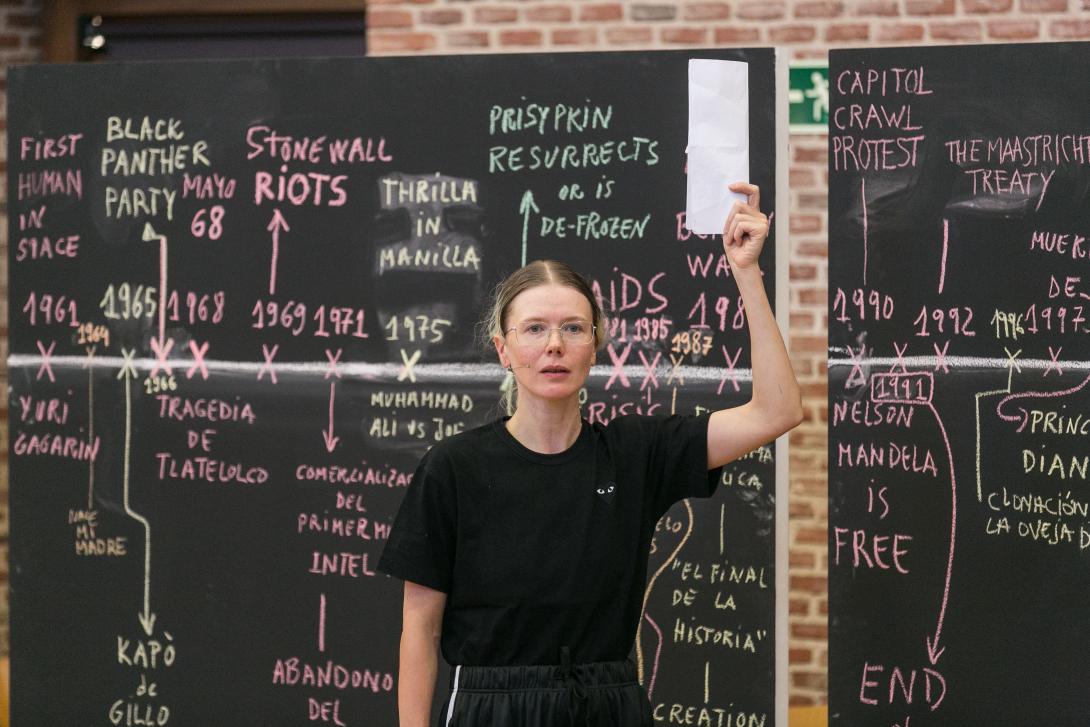 FIRST
HUMAN
IN
SPACE
1961
YURI
GAGARIN
1964
NACE
MI
MADRE
BLACK
PANTHER
PARTY
1965
1966
KAPÒ
de
GILLO
MAYO
68
1968
TRAGEDIA
DE
TLATELOLCO
STONEWALL
RIOTS
1969
1971
COMERCIALIZAC
DEL
PRIMER MI
INTEL
ABANDONO
DEL
THRILLA
IN
MANILLA
1975
MUHAMMAD
ALI vs JOE
PRISYPKIN
RESURRECTS
OR IS
DE-FROZEN
AIDS
1985
1987
198
WA
"EL FINAL
DE LA
HISTORIA"
CREATION
CAPITOL
CRAWL
PROTEST
1990
1991
NELSON
MANDELA
IS
FREE
END
THE MAASTRICHT
TREATY
1992
1996
CLONACIÓN
LA OVEJA D
MUER
DE
1997
PRINC
DIAN